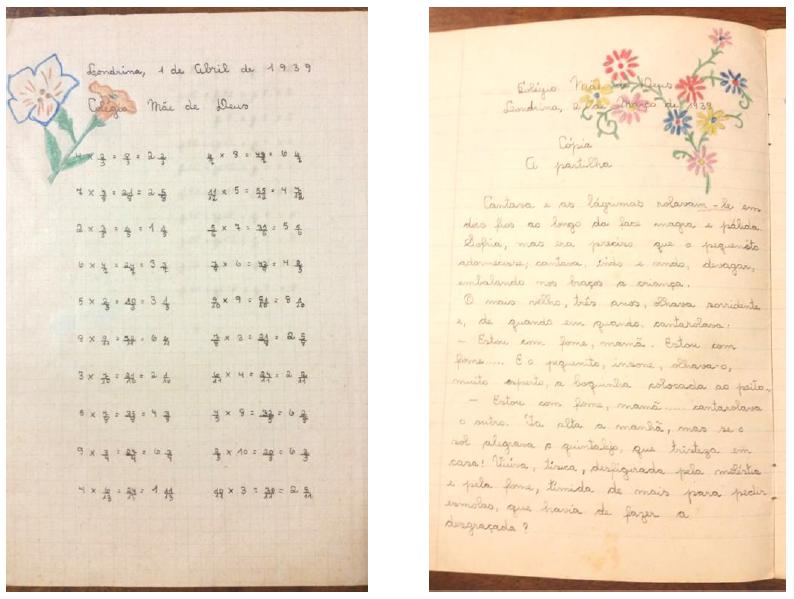 Londrina, 1 de Abril de 1939
Colégio Mãe de Deus
4 × 2/3 = 8/3 = 2 2/3
11/12 × 5 = 55/12 = 4 7/12
2 × 2/3 = 4/3 = 1 1/3
6 × 4/7 = 24/7 = 3 3/7
5 × 2/3 = 10/3 = 3 1/3 9/10 × 9 = 81/10 = 8 1/10
7/8 × 3 = 21/8 = 2 5/8
3 × 7/10 = 21/10 = 2 1/10 6/11 × 4 = 24/11 = 2 2/11
4/5 × 8 = 32/5 = 6 2/5
9 × 3/4 = 27/4 = 6 3/4 2/3 × 10 = 20/3 = 6 2/3
4 × 6/13 = 24/13 = 1 11/13
Colégio Mãe de Deus
Londrina, 2 de Março de 1939
Cópia
A partilha
Cantava e as lágrimas rolavam-lhe em
dois fios ao longo da face magra e pálida
Sofia, mas era preciso que o pequenito
adormecesse; cantava indo e vindo, devagar,
embalando nos braços a criança.
O mais velho, três anos, olhava sorridente
e, de quando em quando cantarolava:
- Estou com fome, mamã. Estou com
fome..... E o pequenito, insone, olhava-o,
muito esperto, a boquinha colocada ao peito.
- Estou com fome, mamã..... cantarolava
o outro. Ia alta a manhã, mas se o
sol alegrava o quintalejo, que tristeza em
casa! Viúva, tísica, desfigurada pela moléstia
e pela fome, tímida de mais para pedir
esmolas, que havia de fazer a
desgraçada?